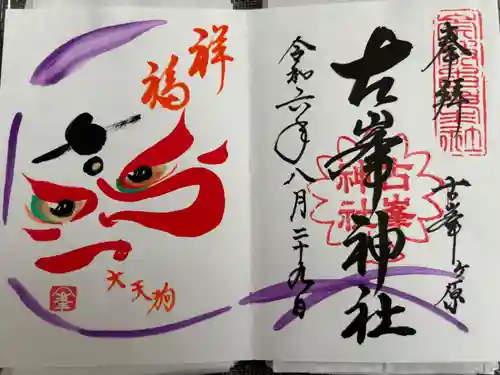 奉拝
古峯ヶ原
古峯神社
古峯神社
令和六年八月二十九日
祥福
大天狗
峯